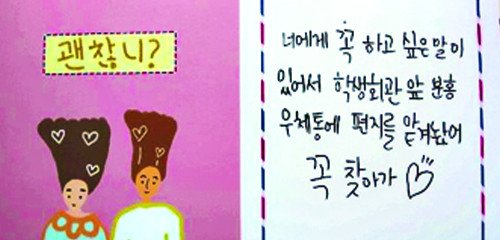 괜찮니?
너에게 꼭 하고 싶은 말이
있어서 학생회관 앞 분홍
우체통에 편지를 맡겨놨어
꼭 찾아가